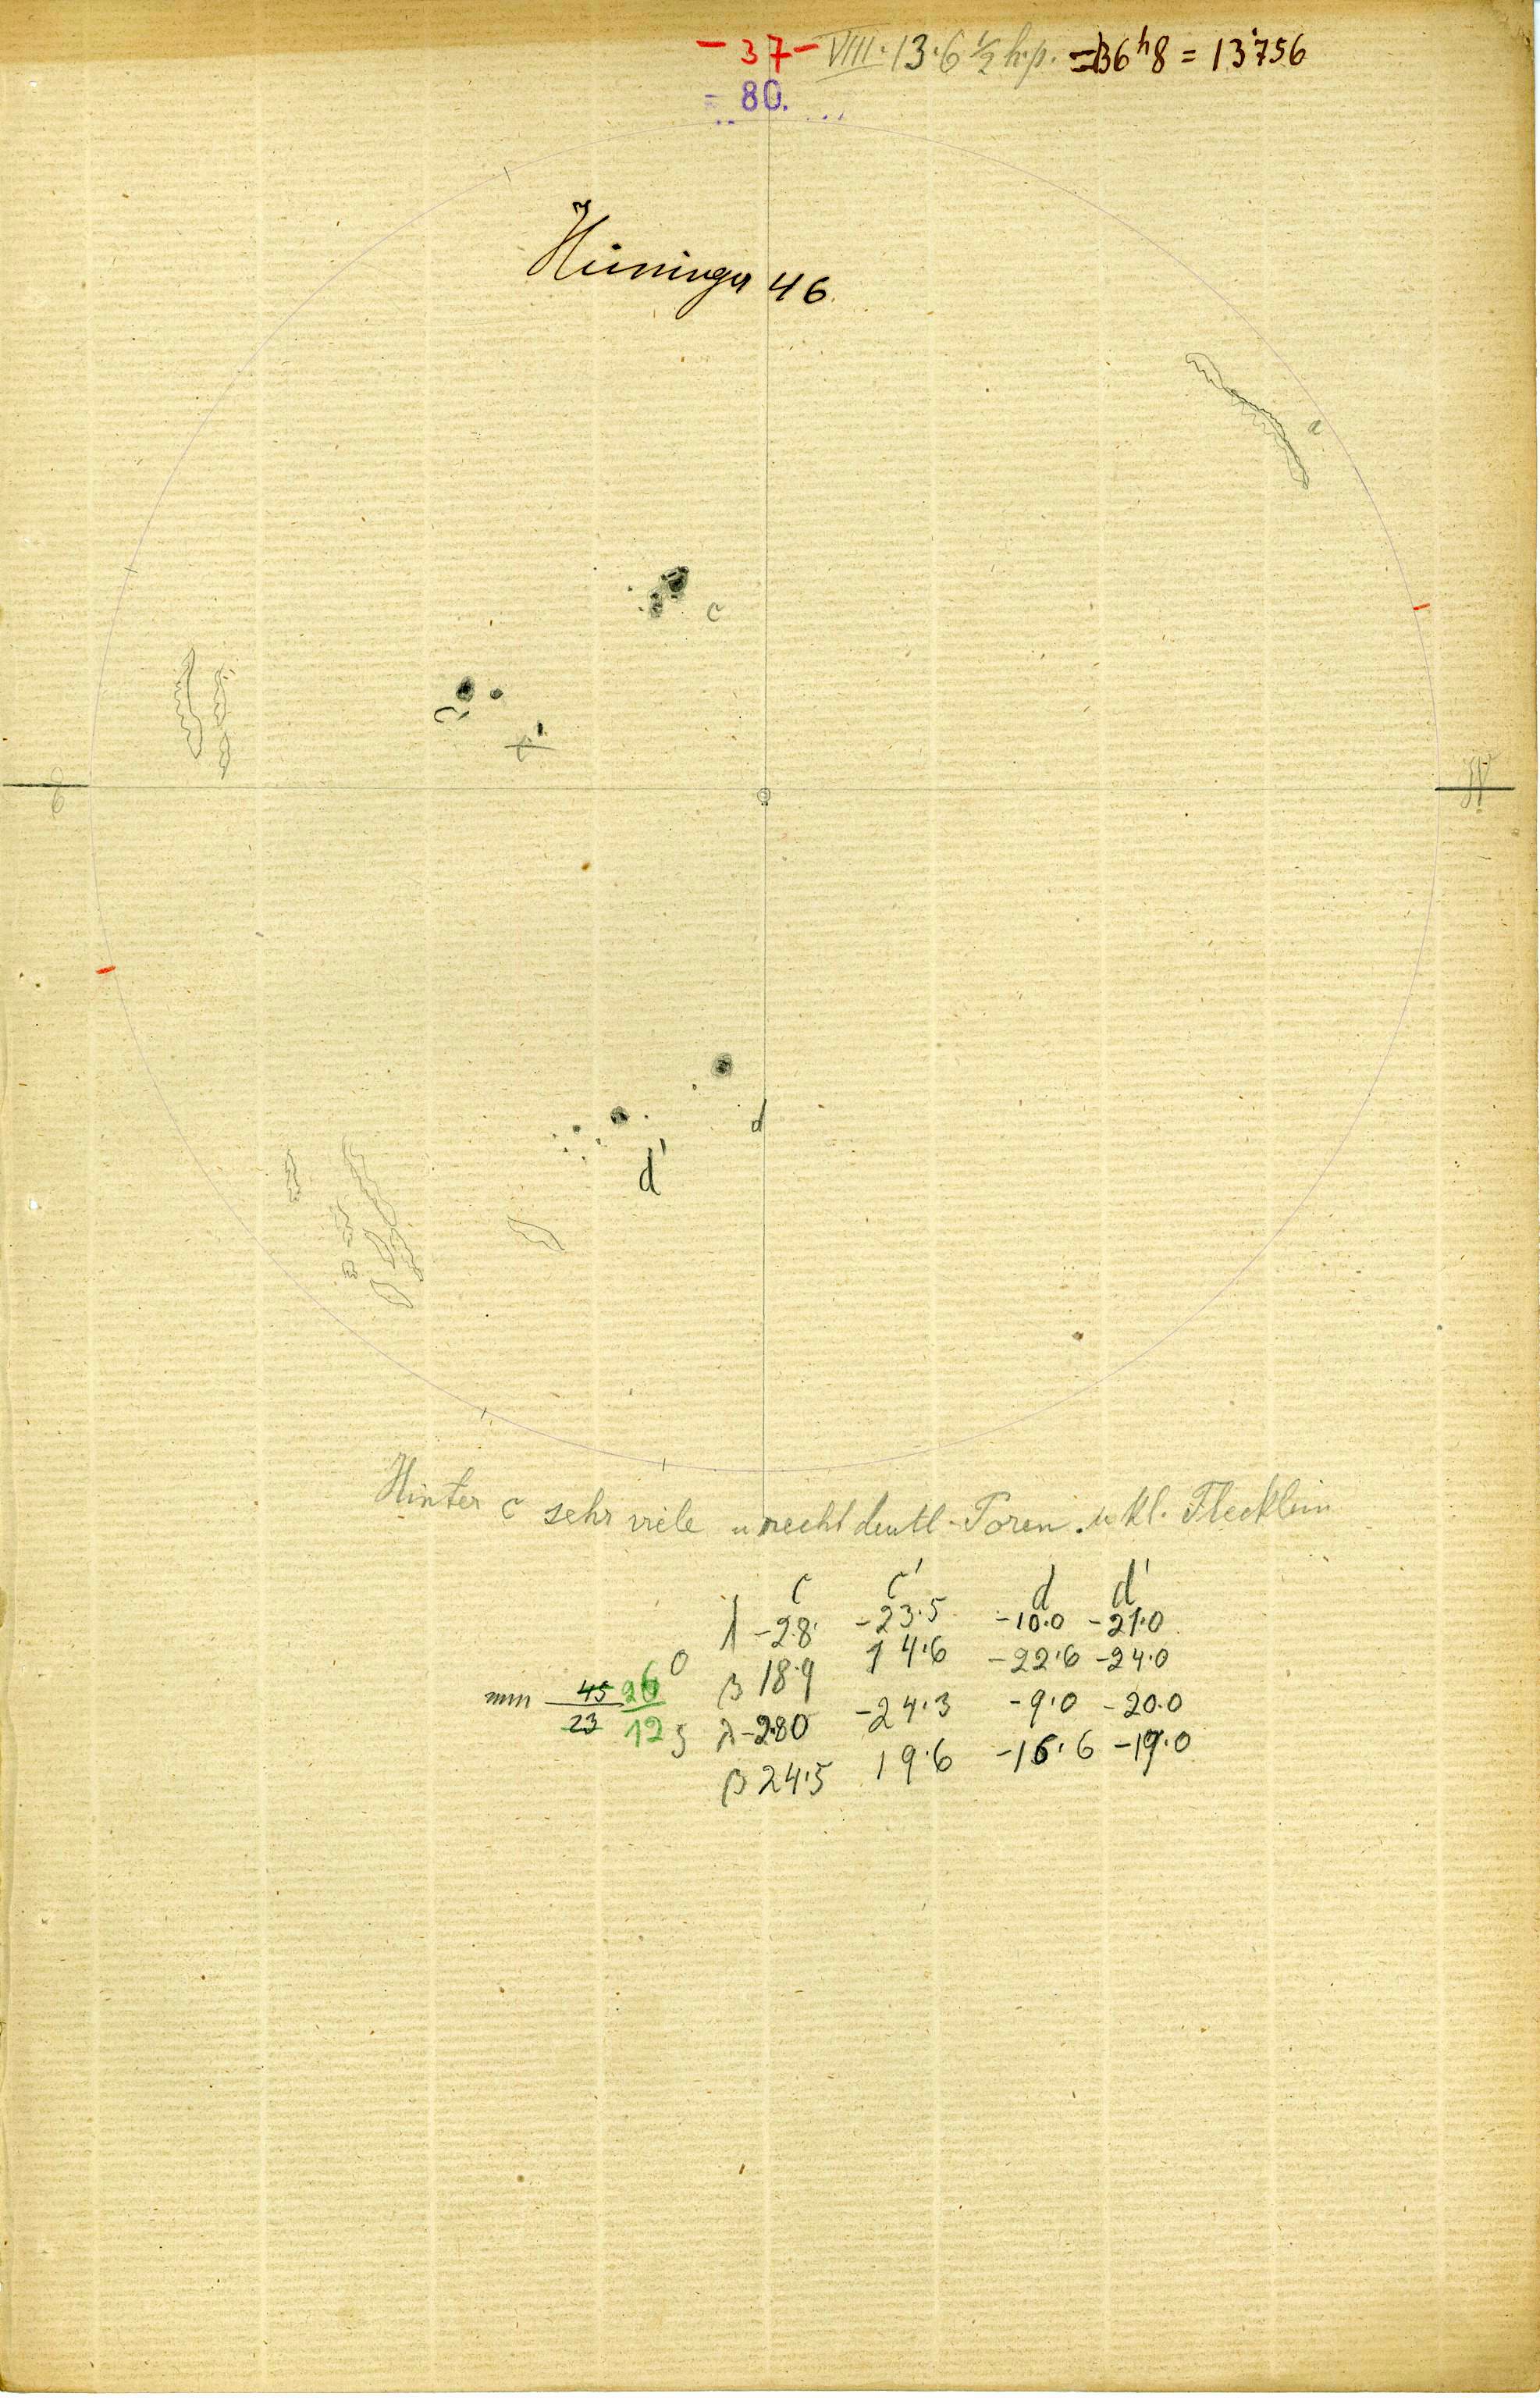 - 37 - VIII. 13. 6 ½ h.p. = 136ʰ8 = 13.756
= 80.
46.
a
c
c'
d
d'
Hinter c sehr viele u recht deutl. Poren. u kl. Flecklein
c c' d d'
λ -28. -23.5 -10.0 -21.0
β 18.9 14.6 -22.6 -24.0
mm 45 26 0
23 12 5
λ -280 -24.3 -9.0 -20.0
β 24.5 19.6 -16.6 -19.0